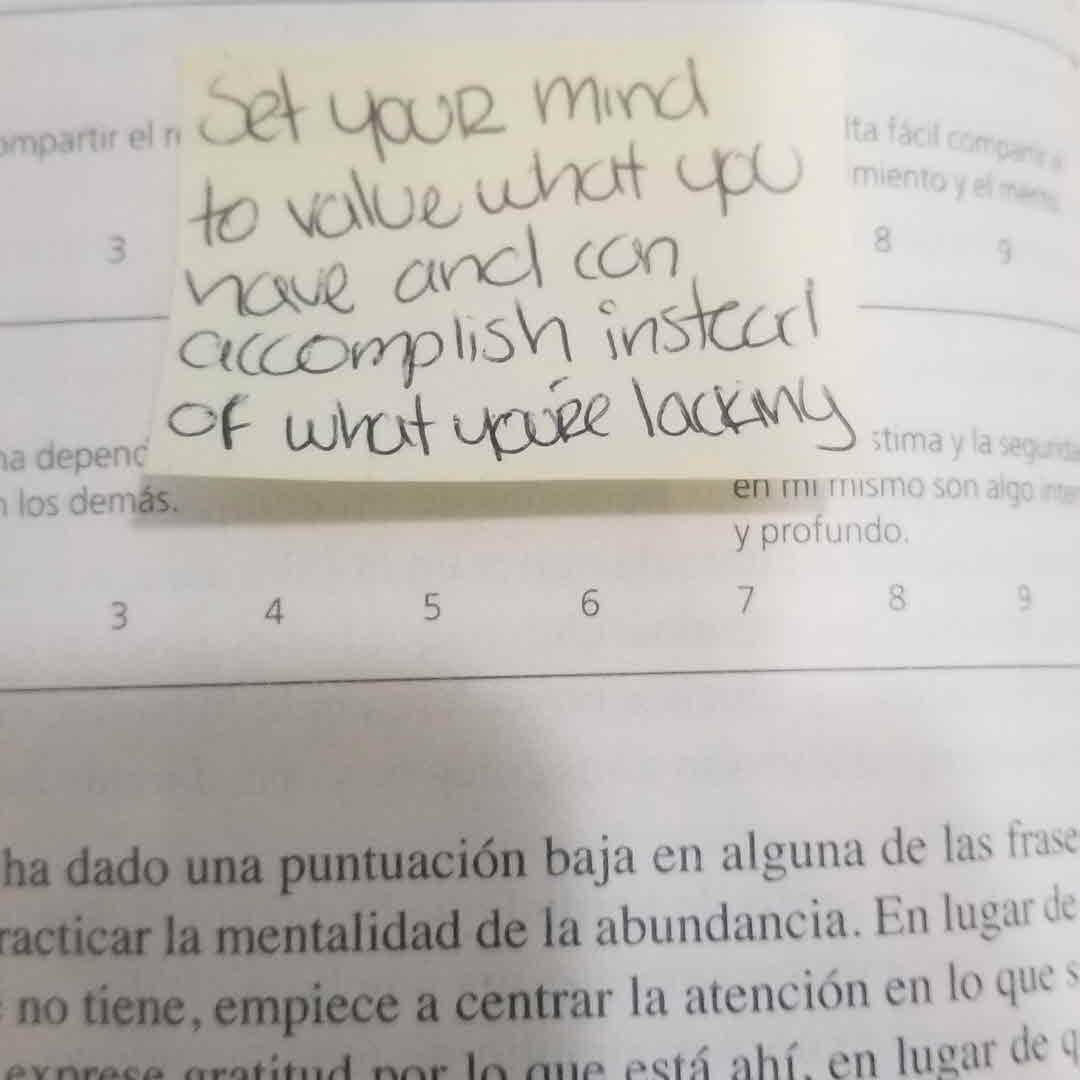 Set youR mind
to value what you
have and can
accomplish instead
of what you're lacking
ompartir el
lta fácil compartir
miento y el
3 8 9
na depend
n los demás.
stima y la
en mí mismo son algo
y profundo.
3 4 5 6 7 8 9
ha dado una puntuación baja en alguna de las frase
racticar la mentalidad de la abundancia. En lugar de
no tiene, empiece a centrar la atención en lo que s
exprese gratitud por lo que está ahí, en lugar de q